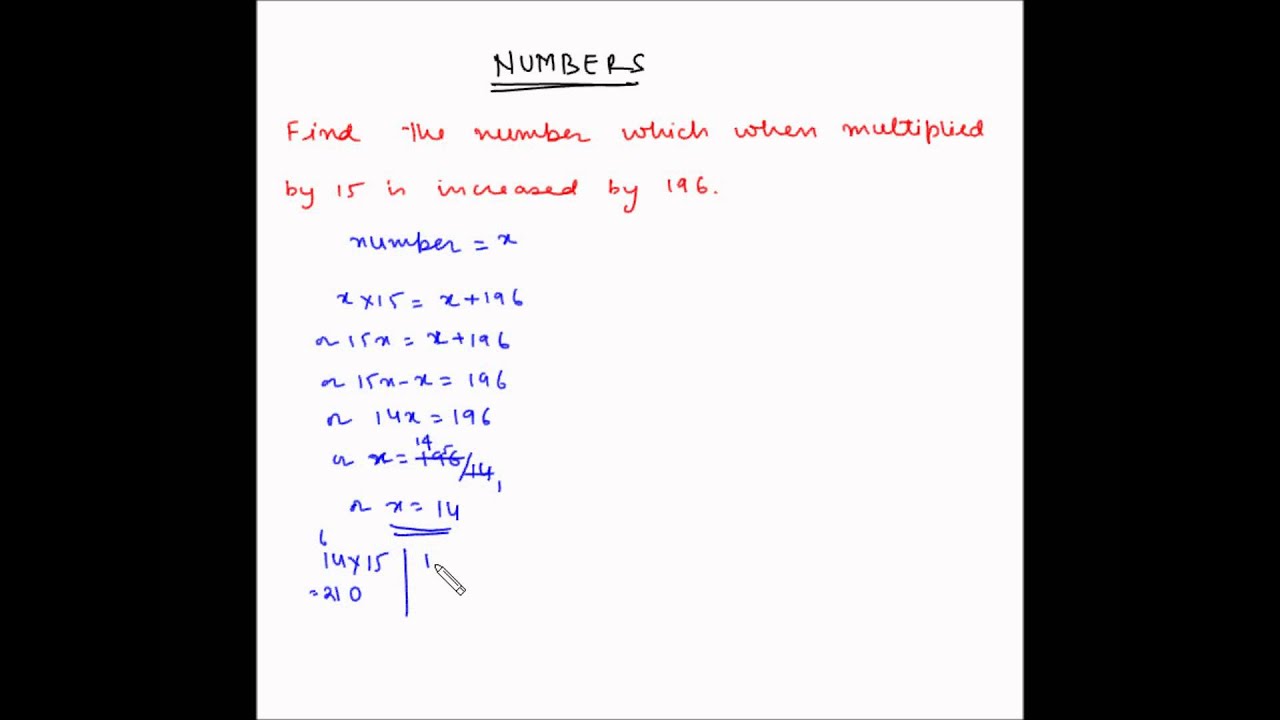 NUMBERS
Find the number which when multiplied
by 15 is increased by 196.
number = x
x × 15 = x + 196
or 15x = x + 196
or 15x - x = 196
or 14x = 196
14
or x = 196/14
1
or x = 14
6
14 × 15 | 1
= 210